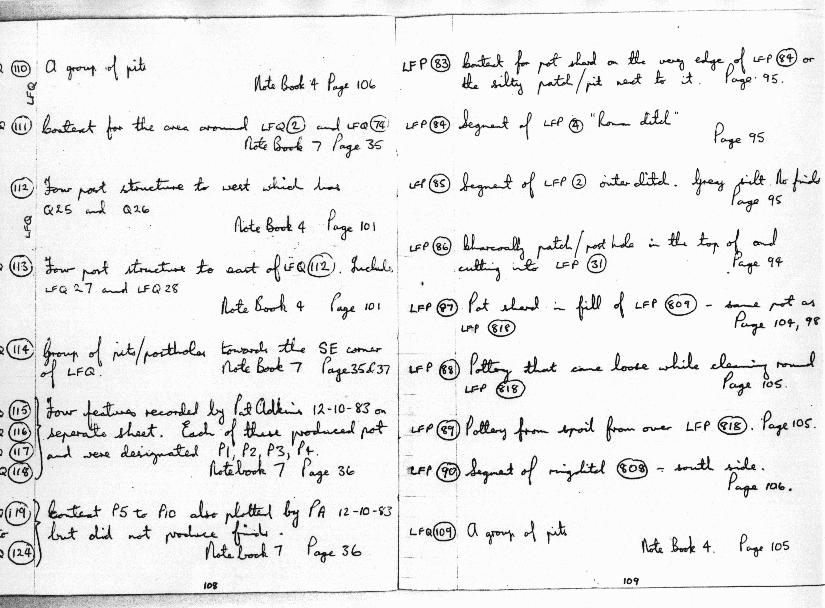 (110) A group of pits
LFQ
Note Book 4 Page 106
(111) Context for the area around LFQ (2) and LFQ (74)
Note Book 7 Page 35
(112) Four post structure to west which has
Q25 and Q26
LFQ
Note Book 4 Page 101
(113) Four post structure to east of LFQ (112). Include
LFQ 27 and LFQ 28
Note Book 4 Page 101
(114) Group of pits/postholes towards the SE corner
of LFQ. Note Book 7 Page 35 & 37
(115) Four features recorded by Pat Adkins 12-10-83 on
(116) seperate sheet. Each of these produced pot
(117) and were designated P1, P2, P3, P4.
(118) Notebook 7 Page 36
(119) Context P5 to P10 also plotted by PA 12-10-83
to but did not produce finds.
(124) Note book 7 Page 36
108
LFP (83) Context for pot sherd on the very edge of LFP (84) or
the silty patch/pit next to it. Page 95.
LFP (84) Segment of LFP (4) "Roman ditch"
Page 95
LFP (85) Segment of LFP (2) outer ditch. Grey silt. No finds
Page 95
LFP (86) Charcoally patch/post hole in the top of and
cutting into LFP (31) Page 94
LFP (87) Pot sherd in fill of LFP (809) - same pot as
LFP (818) Page 104, 98
LFP (88) Pottery that came loose while cleaning round
LFP (818) Page 105.
LFP (89) Pottery from spoil from over LFP (818). Page 105.
LFP (90) Segment of ringditch (808) - south side.
Page 106.
LFQ (109) A group of pits
Note Book 4. Page 105
109